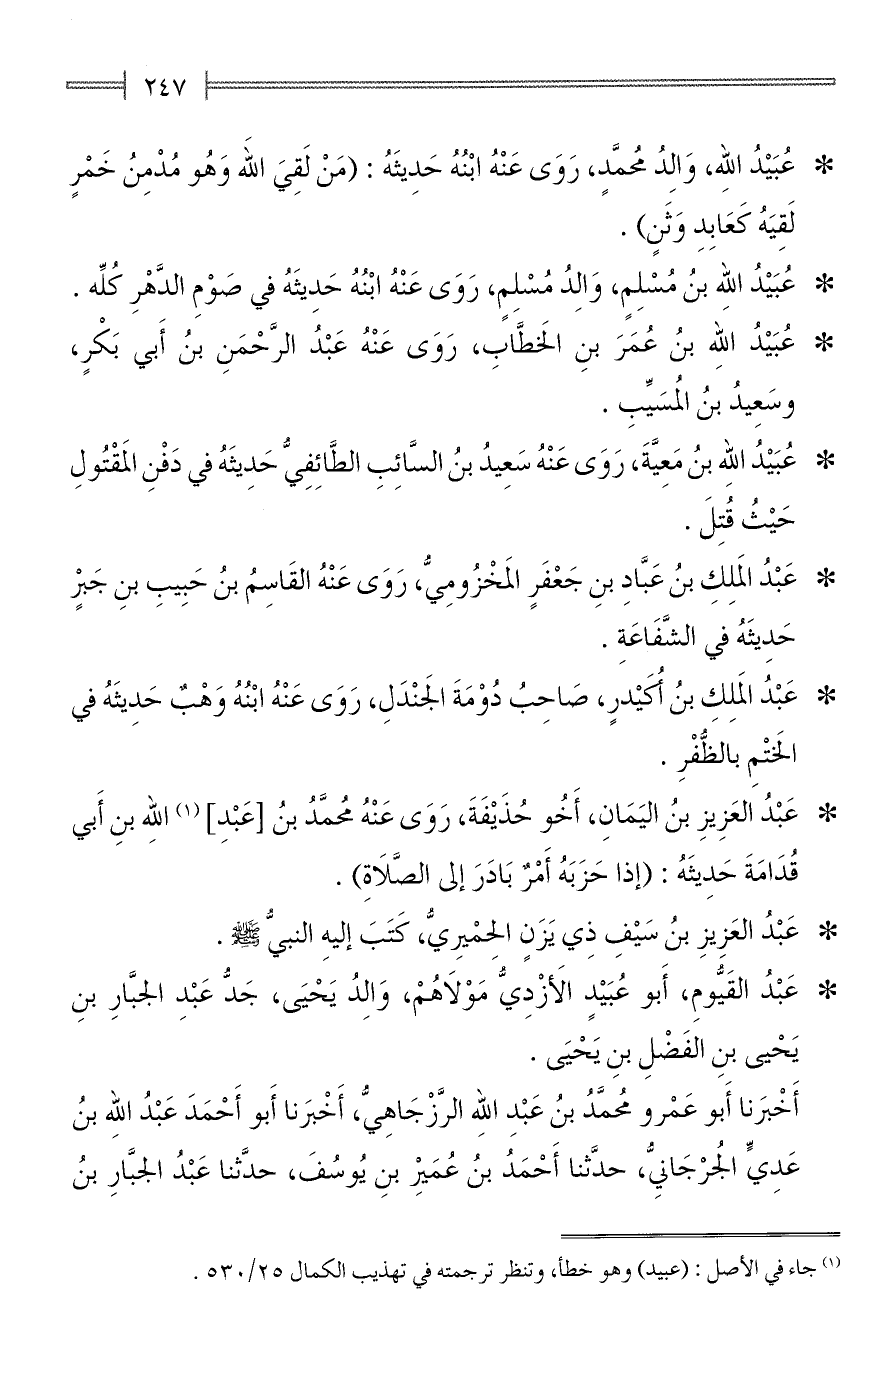 ٢٤٧
* عُبَيْدُ اللهِ، وَالِدُ مُحمَّدٍ، رَوَى عَنْهُ ابْنُهُ حَدِيثَهُ : (مَنْ لَقِيَ اللهَ وَهُو مُدْمِنُ خَمْرٍ
لَقِيَهُ كَعَابِدِ وَثَنٍ) .
* عُبَيْدُ اللهِ بنُ مُسْلِمٍ، وَالِدُ مُسْلِمٍ، رَوَى عَنْهُ ابْنُهُ حَدِيثَهُ في صَوْمِ الدَّهْرِ كُلِّه .
* عُبَيْدُ اللهِ بنُ عُمَرَ بنِ الخَطَّابِ، رَوَى عَنْهُ عَبْدُ الرَّحْمَنِ بنُ أَبي بَكْرٍ،
وسَعِيدُ بنُ المُسَيِّبِ .
* عُبَيْدُ اللهِ بنُ مَعِيَّةَ، رَوَى عَنْهُ سَعِيدُ بنُ السَّائِبِ الطَّائِفِيُّ حَدِيثَهُ في دَفْنِ المَقْتُولِ
حَيْثُ قُتِلَ .
* عَبْدُ المَلِكِ بنُ عَبَّادِ بنِ جَعْفَرٍ المَخْزُوميُّ، رَوَى عَنْهُ القَاسِمُ بنُ حَبِيبِ بنِ جَبْرٍ
حَدِيثَهُ في الشَّفَاعَةِ .
* عَبْدُ المَلِكِ بنُ أُكَيْدرٍ، صَاحِبُ دُوْمَةَ الجَنْدَلِ، رَوَى عَنْهُ ابْنُهُ وَهْبٌ حَدِيثَهُ في
الخَتْمِ بالظُّفْرِ .
* عَبْدُ العَزِيزِ بنُ اليَمَانِ، أَخُو حُذَيْفَةَ، رَوَى عَنْهُ مُحمَّدُ بنُ [عَبْدِ] (١) اللهِ بنِ أَبي
قُدَامَةَ حَدِيثَهُ : (إذا حَزَبَهُ أَمْرٌ بَادَرَ إلى الصَّلَاةِ) .
* عَبْدُ العَزِيزِ بنُ سَيْفِ ذِي يَزَنٍ الحِمْيريُّ، كَتَبَ إليهِ النبيُّ ﷺ .
* عَبْدُ القَيُّومِ، أَبو عُبَيْدٍ الأَزْدِيُّ مَوْلَاهُمْ، وَالدُ يَحْيَى، جَدُّ عَبْدِ الجبَّارِ بنِ
يَحْيى بنِ الفَضْلِ بنِ يَحْيَى .
أَخْبَرَنا أَبو عَمْرٍو مُحمَّدُ بنُ عَبْدِ اللهِ الرَّزْجَاهِيُّ، أَخْبَرَنا أَبو أَحْمَدَ عَبْدُ اللهِ بنُ
عَدِيٍّ الجُرْجَانيُّ، حدَّثنا أَحْمَدُ بنُ عُمَيْرِ بنِ يُوسُفَ، حدَّثنا عَبْدُ الجبَّارِ بنُ
(١) جاء في الأصل : (عبيد) وهو خطأ، وتنظر ترجمته في تهذيب الكمال ٢٥/ ٥٣٠ .